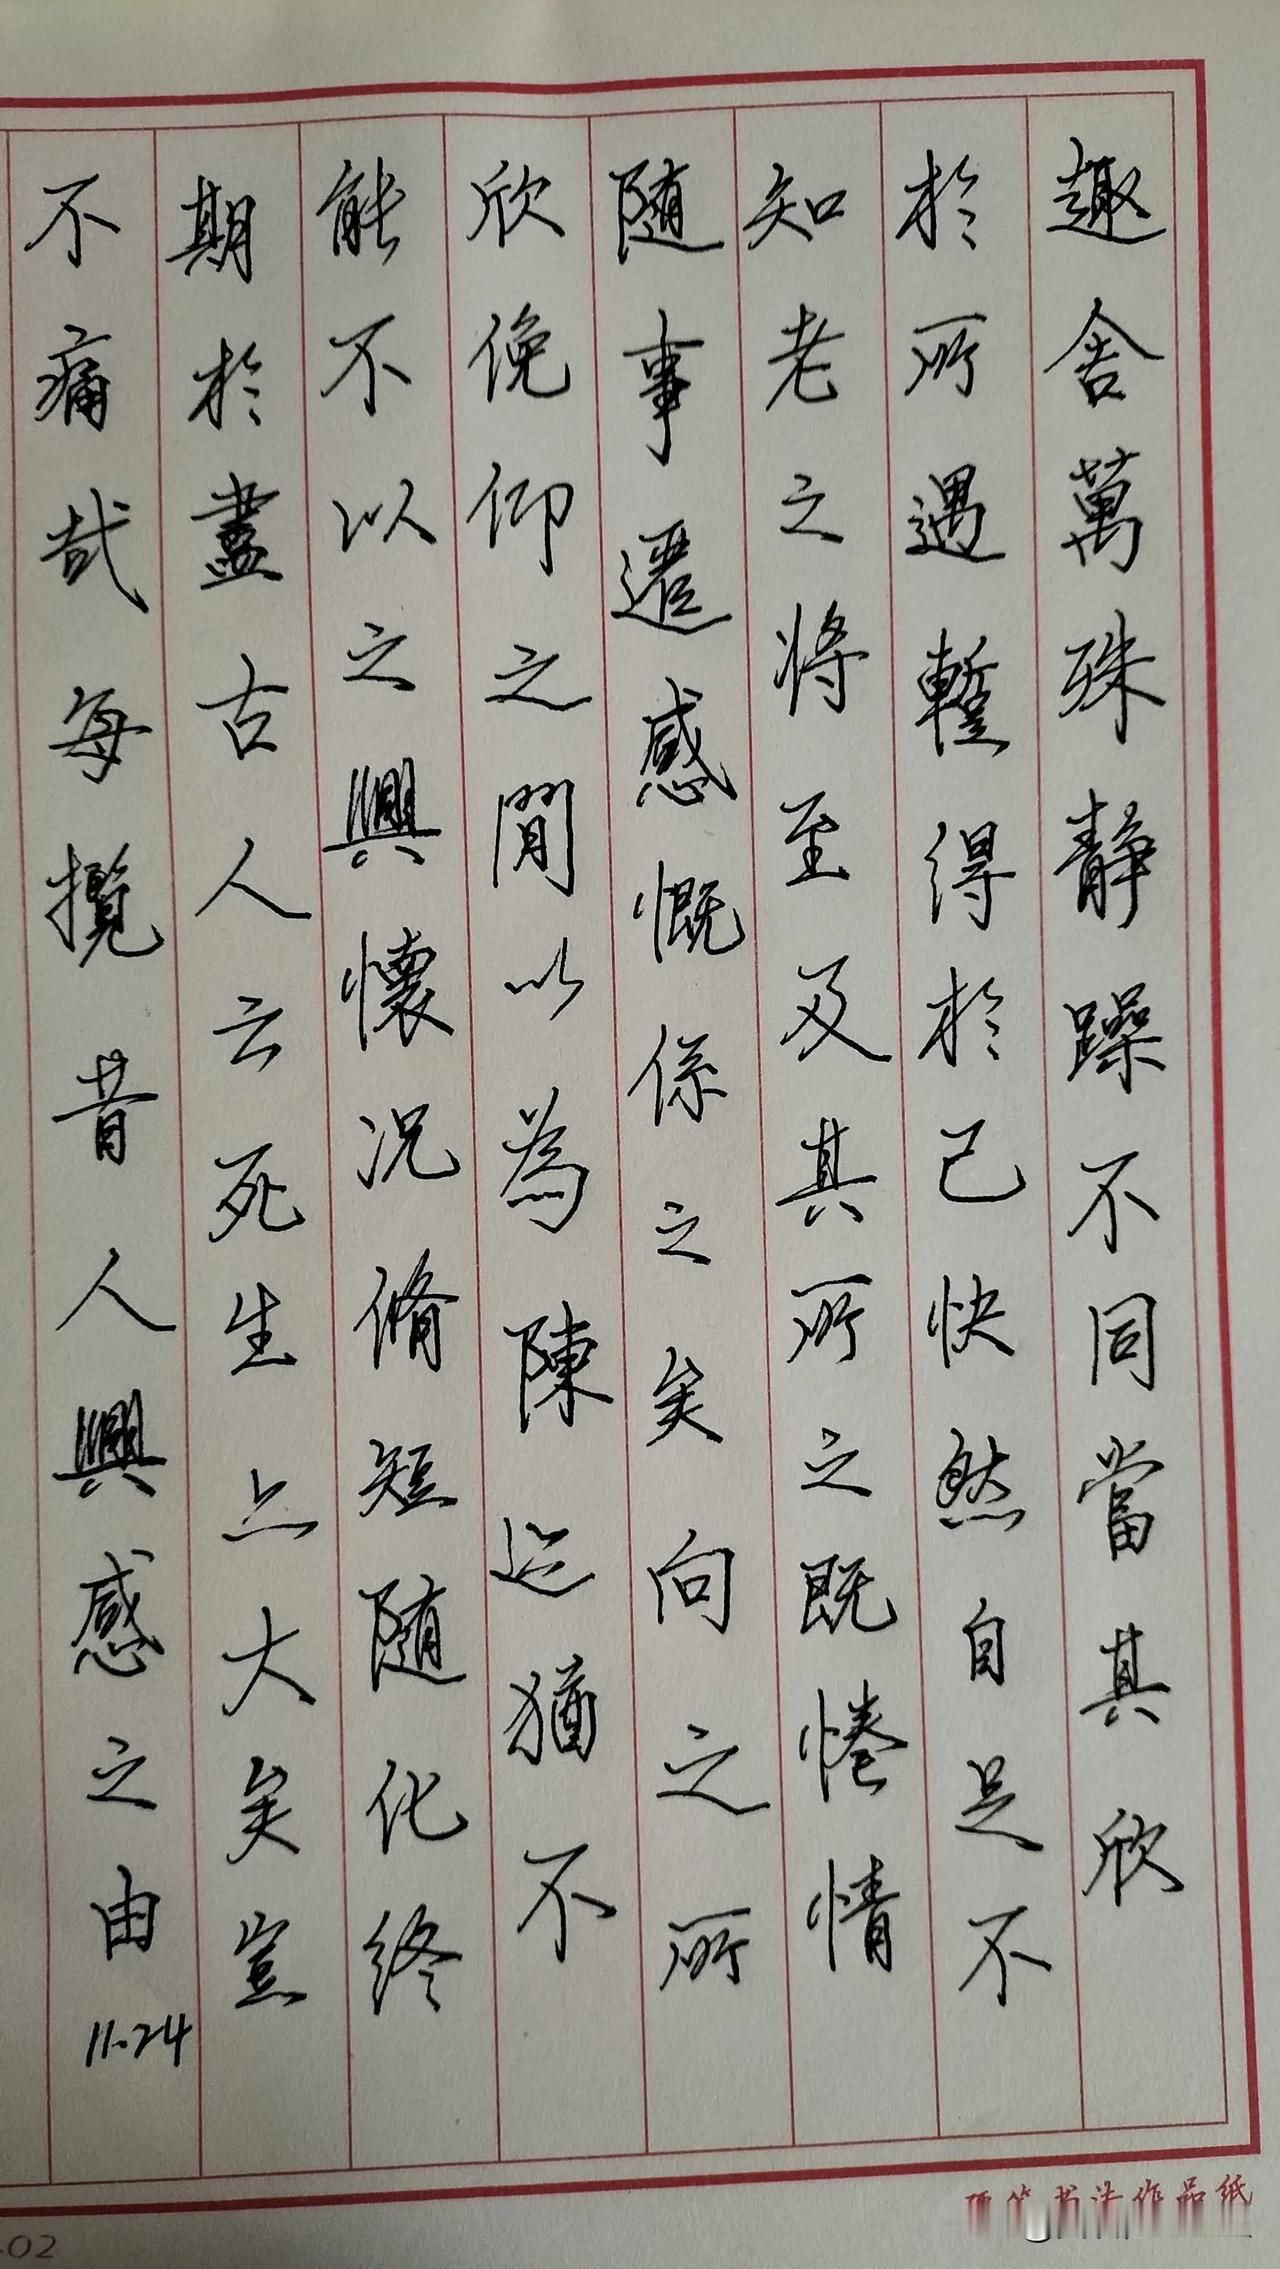 趣舍萬殊静躁不同當其欣
於所遇蹔得於己快然自足不
知老之将至及其所之既惓情
随事遷感慨係之矣向之所
欣俛仰之閒以為陳迹猶不
能不以之興懷況脩短随化終
期於盡古人云死生亦大矣豈
不痛哉每攬昔人興感之由
11.24
硬笔书法作品纸
-02